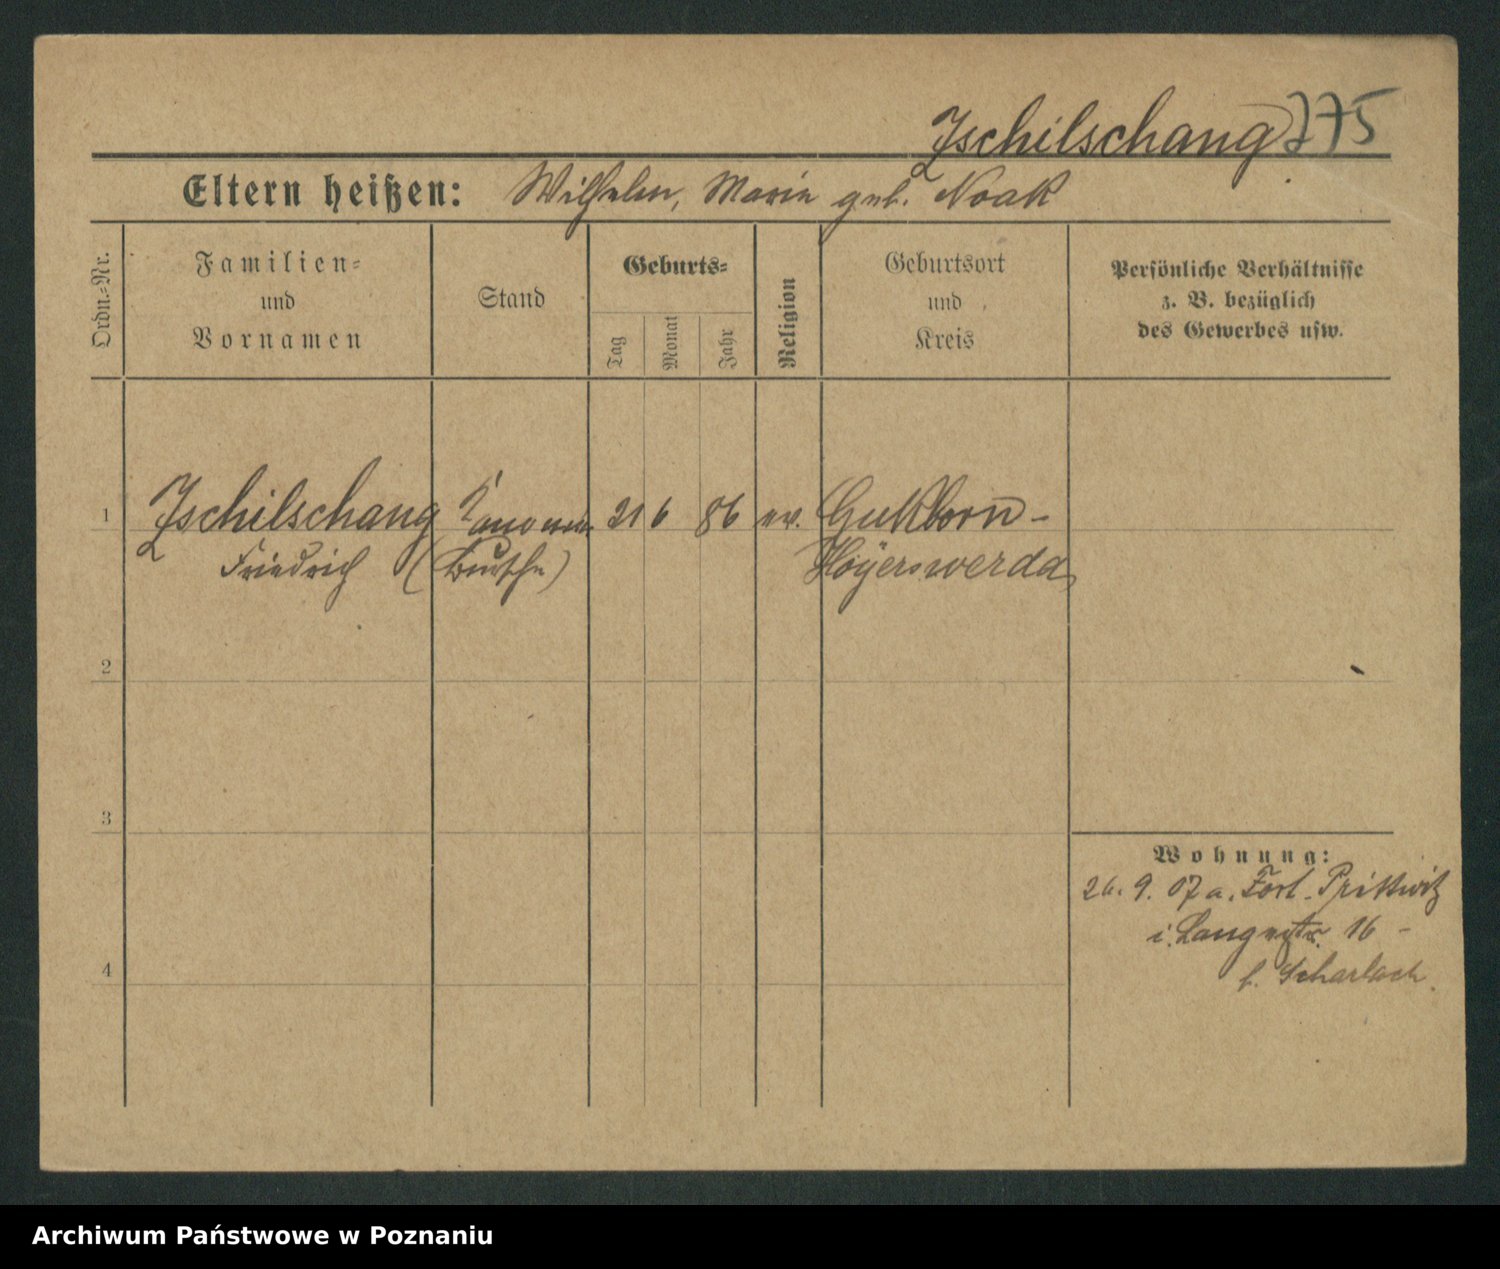 Zschilschang 775
Eltern heißen: Wilhelm, Marie geb. Noak
Ordn.-Nr.
Familien-
und
Vornamen
Stand
Geburts-
Tag
Monat
Jahr
Religion
Geburtsort
und
Kreis
Persönliche Verhältnisse
z. B. bezüglich
des Gewerbes usw.
1 Zschilschang Kanonier 21 6 86 ev. Gukborn-
Friedrich (Bursche) Hoyerswerda
2
3
4
Wohnung:
26. 9. 07 a. Fort. Prittwitz
i. Langestr. 16 -
b. Scharlach.
Archiwum Państwowe w Poznaniu